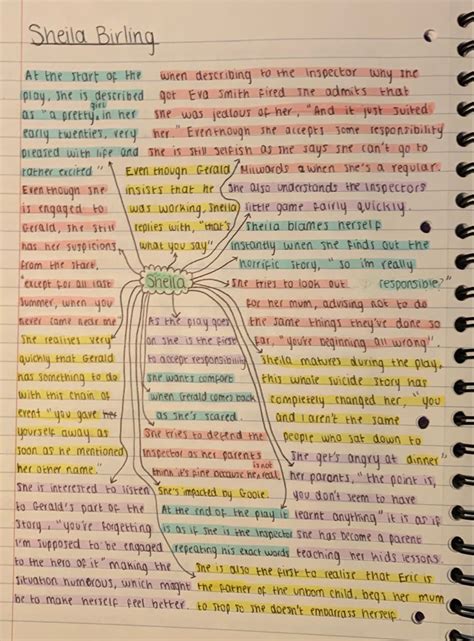 Sheila Birling
At the start of the
play, she is described
as "a pretty girl in her
early twenties, very
pleased with life and
rather excited"
when describing to the Inspector why she
got Eva Smith fired she admits that
she was jealous of her, "And it just suited
her." Eventhough she accepts some responsibility
she is still selfish as she says she can't go to
Milwards when she's a regular.
Even though she
is engaged to
Gerald, she still
has her suspicions
from the start,
"except for all last
summer, when you
never came near me"
Even though Gerald
insists that he
was working, Sheila
replies with, "that's
what you say"
She also understands the Inspectors
little game fairly quickly.
Sheila blames herself
instantly when she finds out the
horrific story, "so i'm really
responsible?"
Sheila
She tries to look out
for her mum, advising not to do
the same things they've done so
far, "you're beginning all wrong".
She realises very
quickly that Gerald
has something to do
with this chain of
event "you gave
yourself away as
soon as he mentioned
her other name."
As the play goes
on she is the first
to accept responsibility
She wants comfort
when Gerald comes back
as she's scared.
Sheila matures during the play,
this whole suicide story has
completely changed her, "you
and I aren't the same
people who sat down to
dinner"
She tries to defend the
Inspector as her parents
think it's fine because he is not real
She gets angry at
her parents, "the point is,
you don't seem to have
learnt anything" it is as if
she has become a parent
teaching her kids lessons.
She is interested to listen
to Gerald's part of the
story, "you're forgetting
I'm supposed to be engaged
to the hero of it" making the
situation humerous, which might
be to make herself feel better.
She's impacted by Goole.
At the end of the play it
is as if she is the Inspector
repeating his exact words
She is also the first to realise that Eric is
the father of the unborn child, begs her mum
to stop so she doesn't embarrass herself.